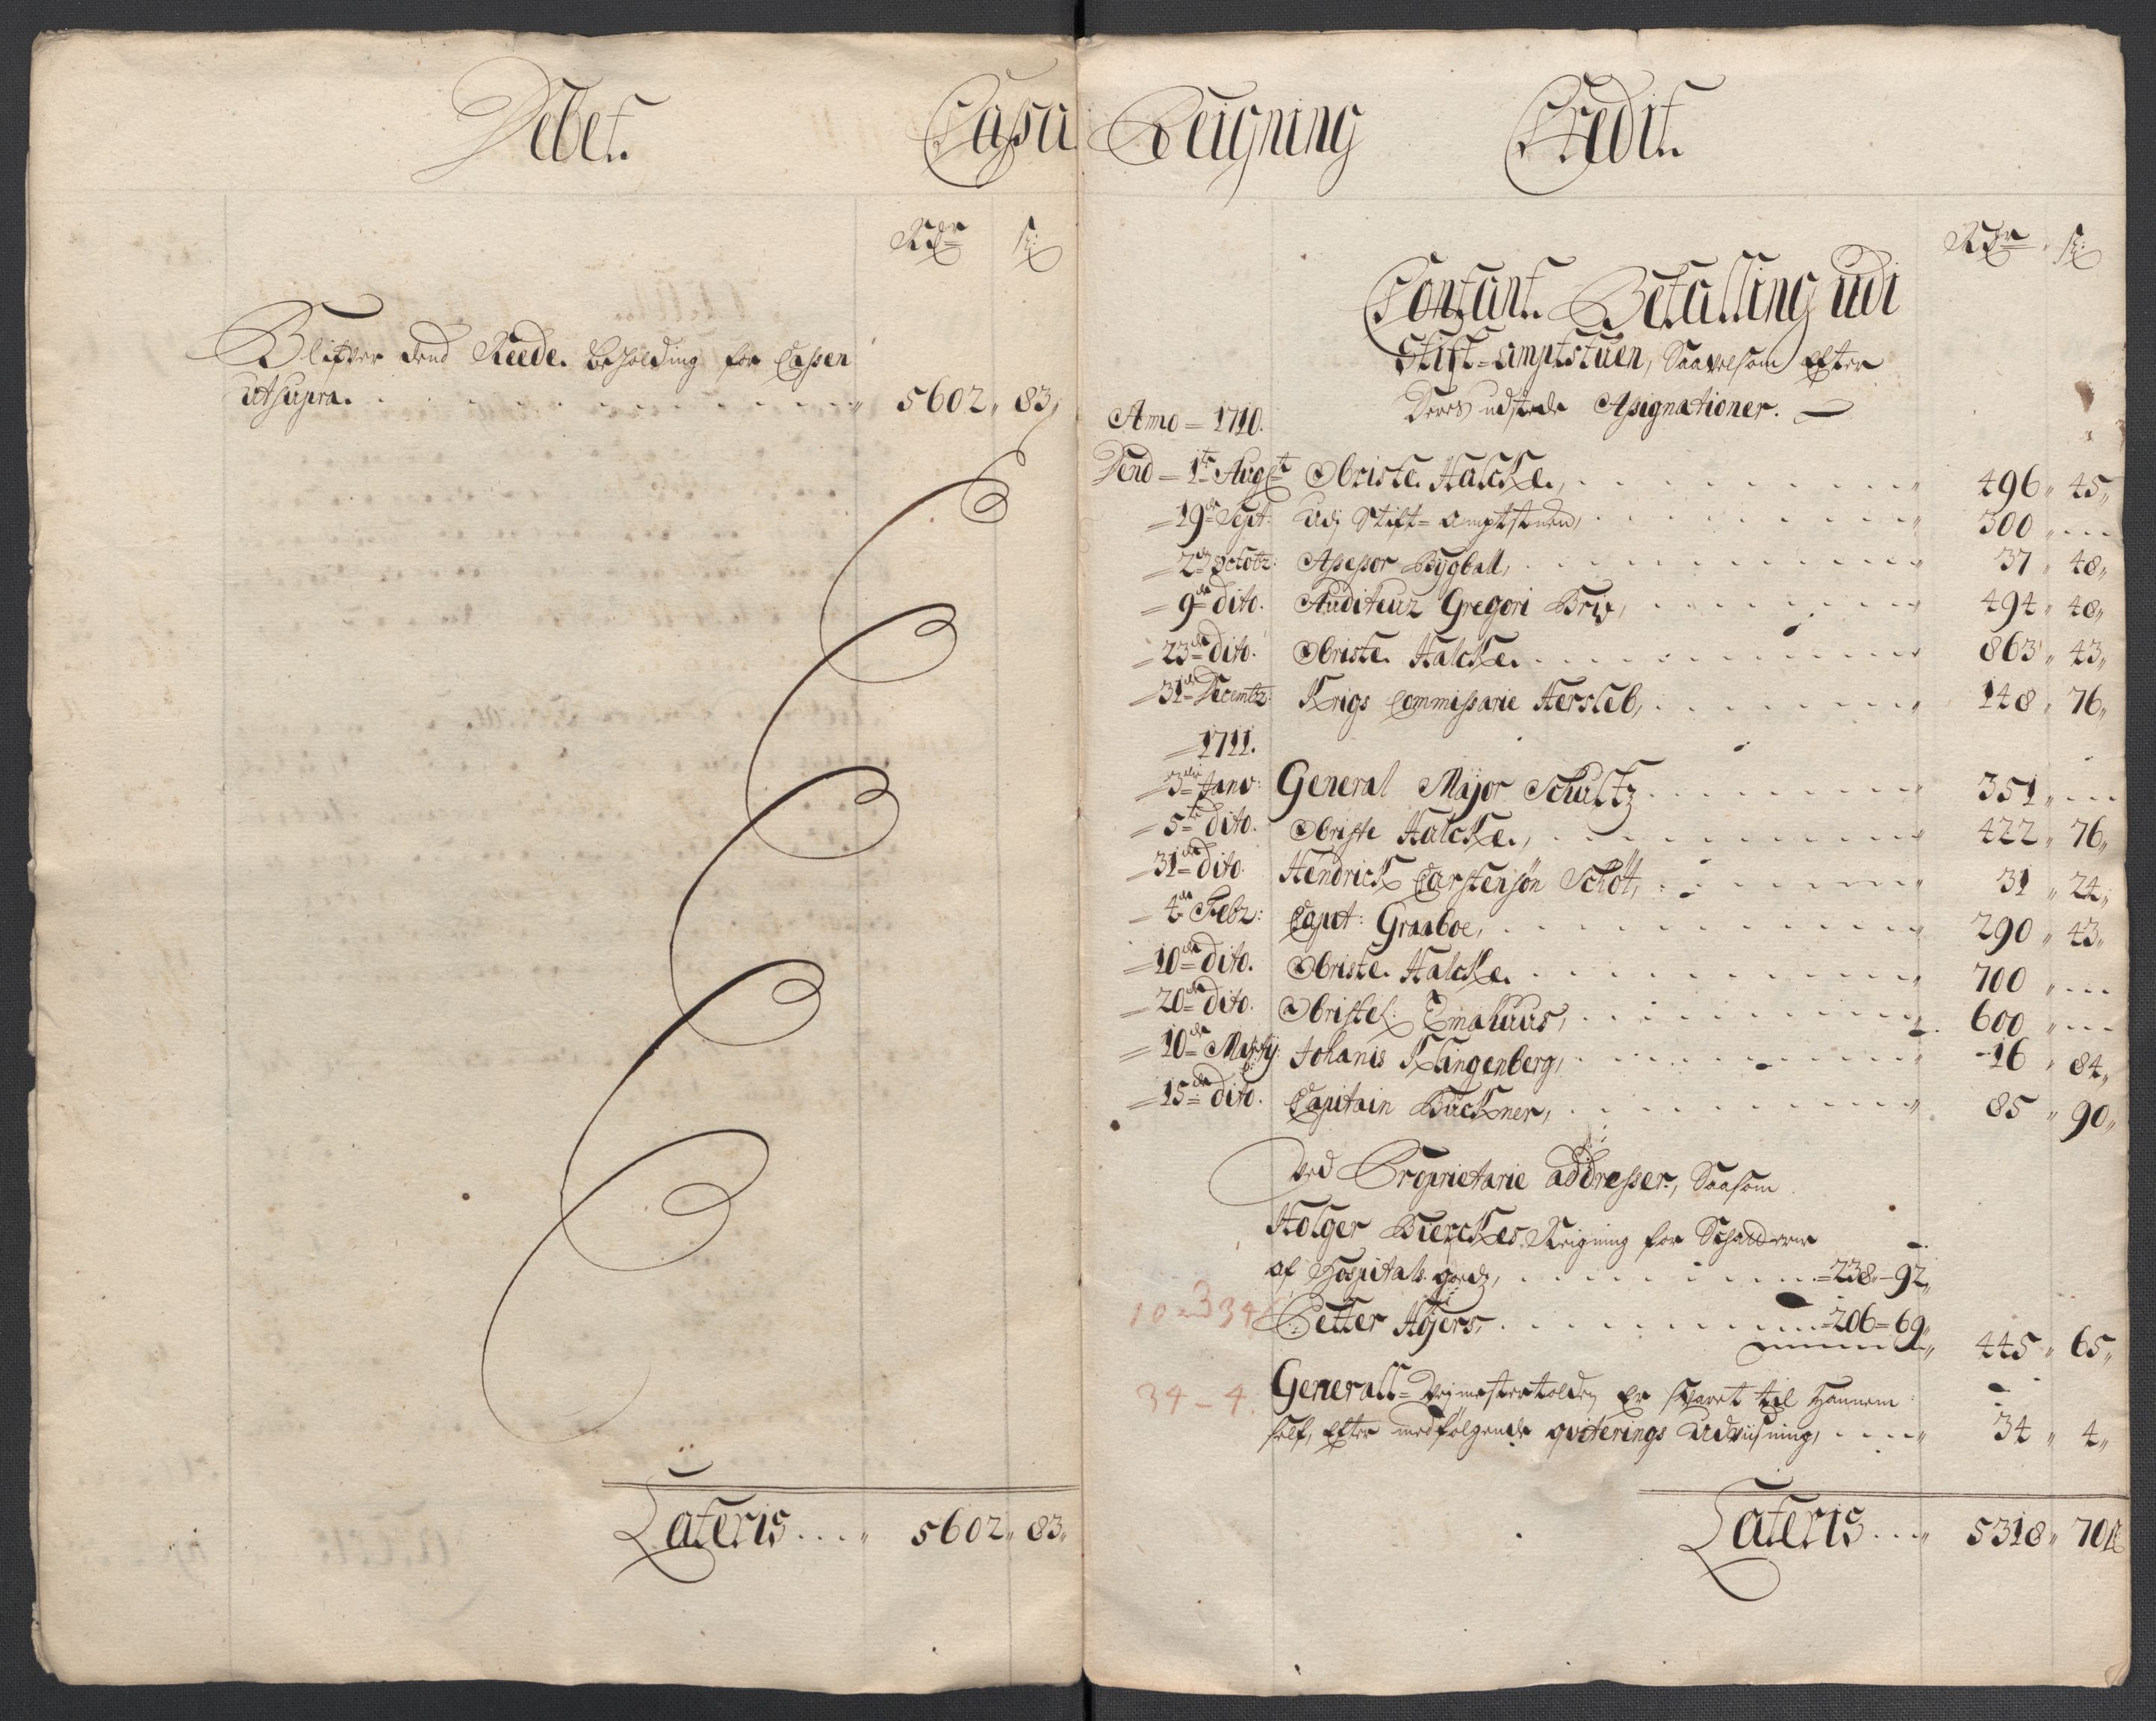 Debet. Cassa Reigning Credit.
Rdr ß
Blifver dend Reede. beholding for Cassen
Utsupra. 5602 83
Lateris 5602 83
Rdr ß
Contant. Betalling udi
Stift-amptstuen, Saavelsom efter
Deres udstede Assignationer.
Anno 1710.
Dend 1te Augst Obriste. Halcke, 496 45
19de Sept: Udj Stift-amptstuen, 300
2de Octobr: Assessor Bÿgball, 37 48
9de dito. Auditeur Gregori 494 48
23de dito. Obriste. Halcke. 863 43
31de Decembr: Krigs Commissarie Hersleb, 148 76
1711.
3die Janv: General Major Schultz 351
5te dito. Obriste Halcke, 422 76
31de dito. Hendrick Carstensøn Schöt, 31 24
4de Febr: Capit: Graaboe, 290 43
10de dito. Obriste. Halcke. 700
20de dito. Obristel: Emahuus, 600
10de Martÿ: Johanis Klingenberg, 16 84
15de dito. Capitain Bückner, 85 90
Ved Proprietarie addresser, Saasom
Holger Bierckes Reigning for Schatterne
af Hospitals godz, 238 - 92
10 - 334
Petter Agers, 206 = 69
445 65
34 - 4.
Generall-Vejmestertolden er svaret til Hannem
self, efter medfølgende qviterings Udviisning, 34 4
Lateris 5318 70ß